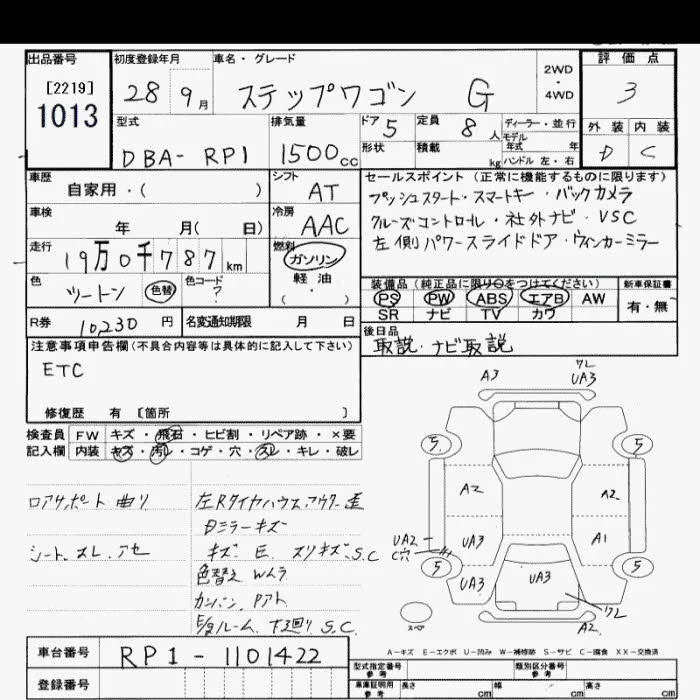 出品番号 初度登録年月 車名・グレード 2WD・4WD 評価点
[2219] 1013
28 9月 ステップワゴン G 3
型式 排気量 ドア 5 定員 8人 ディーラー・並行 外装 内装
DBA-RP1 1500cc 形状 積載 kg モデル年式 年 ハンドル 左・右 D C
車歴 自家用・( ) シフト AT セールスポイント (正常に機能するものに限ります)
プッシュスタート・スマートキー・バックカメラ
車検 年 月( 日) 冷房 AAC クルーズコントロール・社外ナビ・VSC
左側パワースライドドア・ウィンカーミラー
走行 19万0千787km 燃料 ガソリン 軽油 ( ・ )
色 ツートン 色替 色コード ?
装備品 (純正品に限り○をつけてください) 新車保証書
PS PW ABS エアB AW 有・無
SR ナビ TV カワ
R券 10,230円 名変通知期限 月 日 後日品
取説・ナビ取説
注意事項申告欄(不具合内容等は具体的に記入して下さい)
ETC
修復歴 有 [箇所 ]
検査員 FW キズ・飛石・ヒビ割・リペア跡・×要
記入欄 内装 キズ・汚レ・コゲ・穴・スレ・キレ・破レ
ロアサポート 曲リ 左Rタイヤハウスアウター歪
ミラーキズ
シート スレ アセ キズ E スリキズ S.C
色替え Wムラ
ルーム 下廻り S.C
A3 ワレ UA3
5 5
A2 A2
UA2 C穴 UA3 A1
5 5
UA3 UA3 ワレ
スペア A2
A-キズ E-エクボ U-凹み W-補修跡 S-サビ C-腐食 XX-交換済
車台番号 RP1-1101422
型式指定番号 参考 類別区分番号 参考
登録番号 車庫証明用 参考 長さ cm 幅 cm 高さ cm